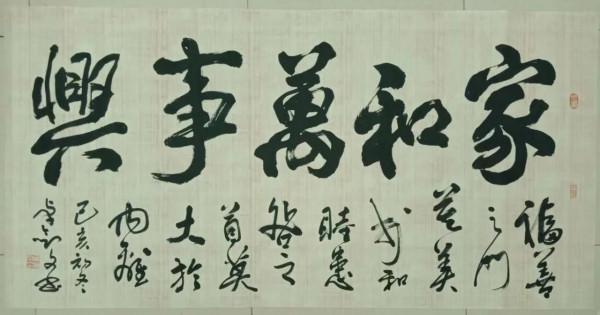 家和萬事興
福善
之門
莫美
於和
睦患
咎之
首莫
大於
内離
己亥初冬